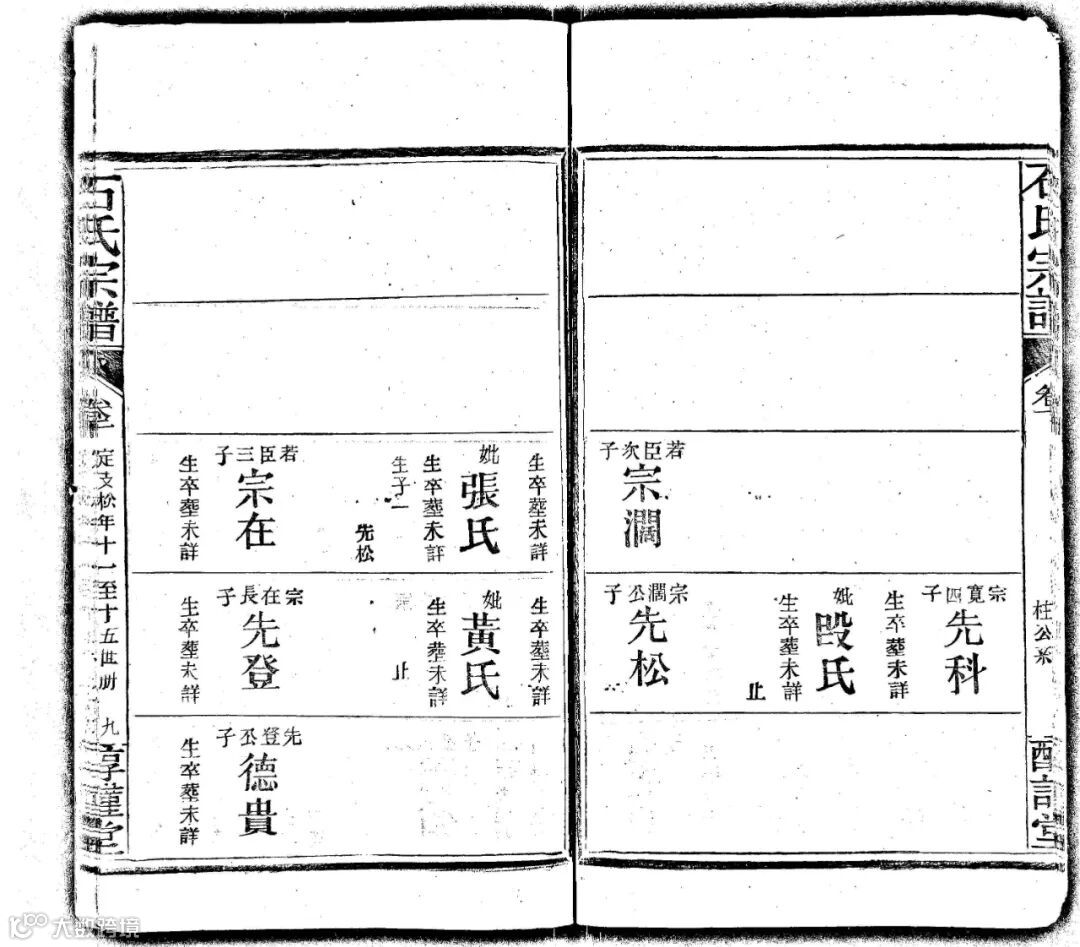 石氏宗譜
卷一
柱公系
若臣次子
宗濶
宗寬四子
先科
生卒塟未詳
妣
段氏
生卒塟未詳
止
宗濶公子
先松
生卒塟未詳
妣
張氏
生卒塟未詳
生子一
先松
若臣三子
宗在
生卒塟未詳
生卒塟未詳
妣
黃氏
生卒塟未詳
止
宗在長子
先登
生卒塟未詳
先登公子
德貴
生卒塟未詳
石氏宗譜
定支松年十一至十五世册
九
大数跨境